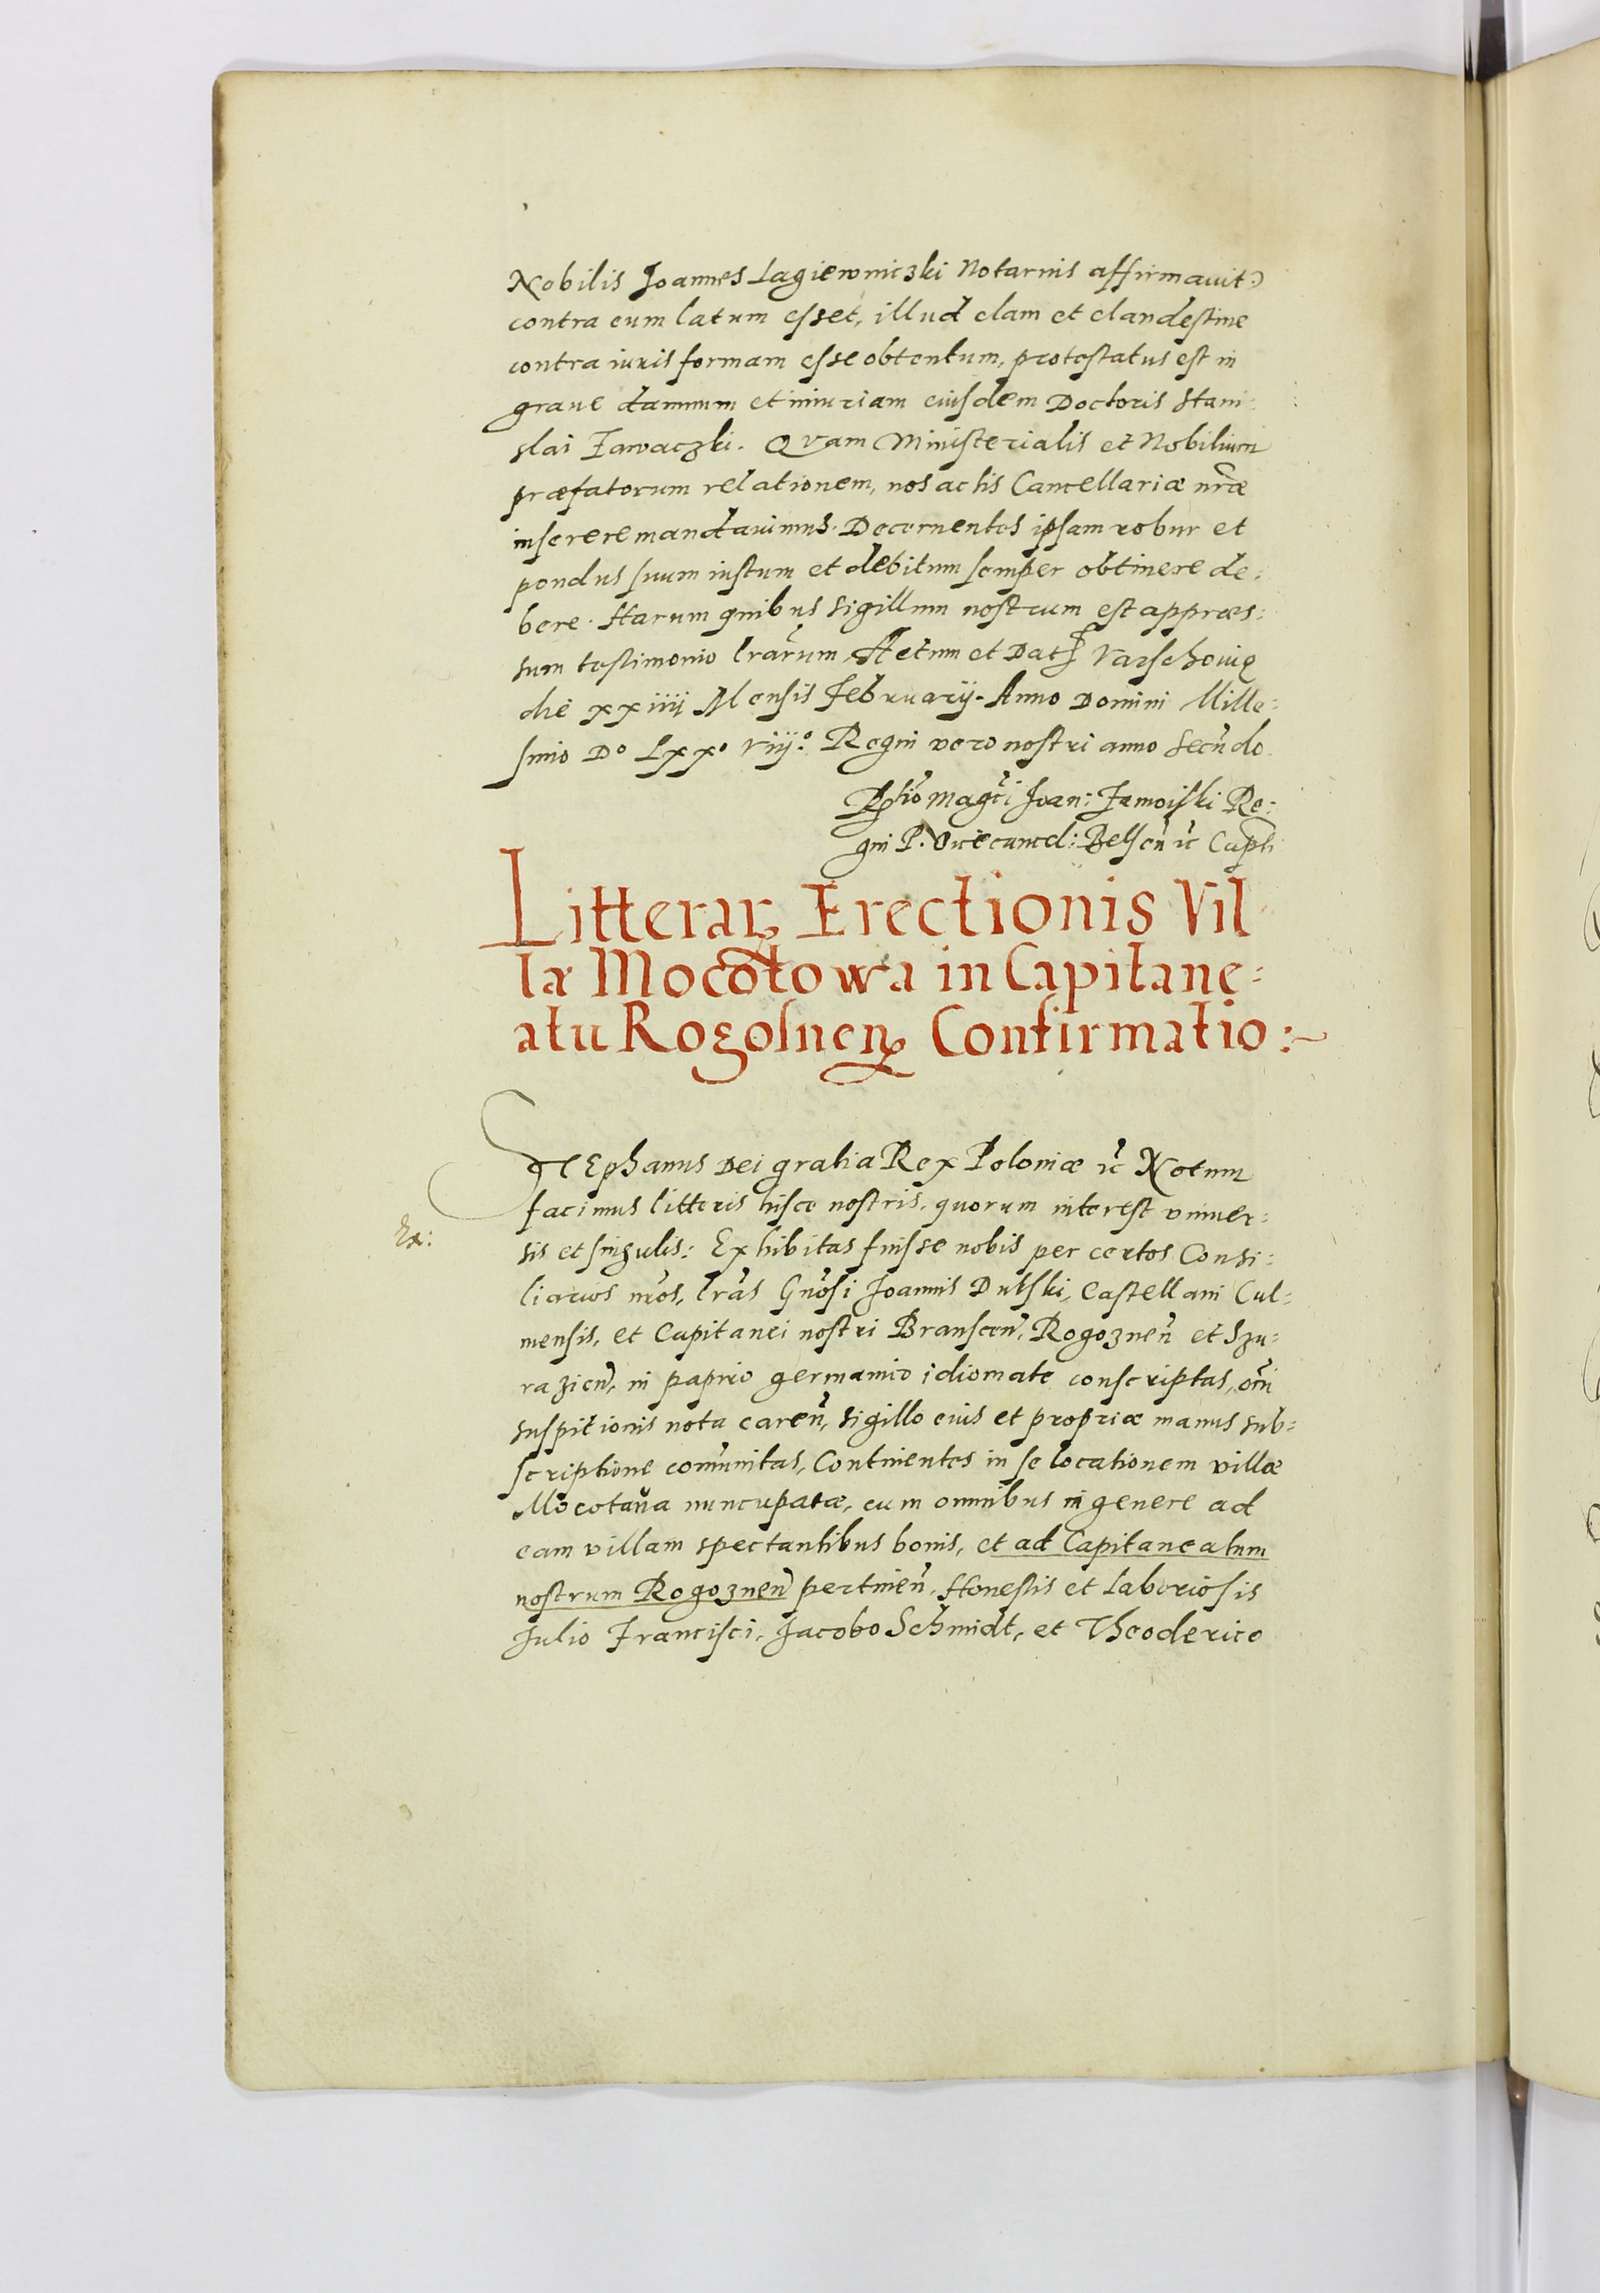 Nobilis Joannes Lagiewniczki Notarius affirmauit)
contra eum latum esset, illud clam et clandestine
contra iuris formam esse obtentum, protestatus est in
graue damnum et iniuriam eiusdem Doctoris Stani:
slai Zawaczki. Quam Ministerialis et Nobilium
præfatorum relationem, nos actis Cancellariæ nr̃æ
inserere mandauimus. Decernentes ipsam robur et
pondus suum iustum et debitum semper obtinere de:
bere. Harum quibus sigillum nostrum est appræs:
sum testimonio lr̃arum, Actum et Dat Varschouię
die xxiiij Mensis February. Anno Domini Mille:
simo Do Lxxo viijo. Regni vero nostri anno secũdo
Rl̃io Magci Joan: Zamoiski Re:
gni P. Vicecancel: Belsen̄ ec̃ Capti
Litterar Erectionis Vil
læ Mocotowa in Capitane:
atu Rogosnen Confirmatio:~
Stephanus Dei gratia Rex Poloniæ ec̃ Notum
facimus litteris hisce nostris, quorum interest vniuer:
sis et singulis: Exhibitas fuisse nobis per certos Consi:
Ex:
liarios nr̃os, lr̃as Gnõsi Joannis Dulski, Castellani Cul:
mensis, et Capitanei nostri Branscen̄, Rogoznen̄ et Szu:
razien̄, in papiro germanico idiomate conscriptas, om̃i
suspitionis nota caren̄, sigillo eius et propriæ manus sub:
scriptione com̃unitas, Continentes in se locationem villæ
Mocotaua nuncupatæ, cum omnibus in genere ad
eam villam spectantibus bonis, et ad Capitaneatum
nostrum Rogoznen̄ pertinen̄, Honestis et Laboriosis
Julio Francisci, Jacobo Schmidt, et Theoderico